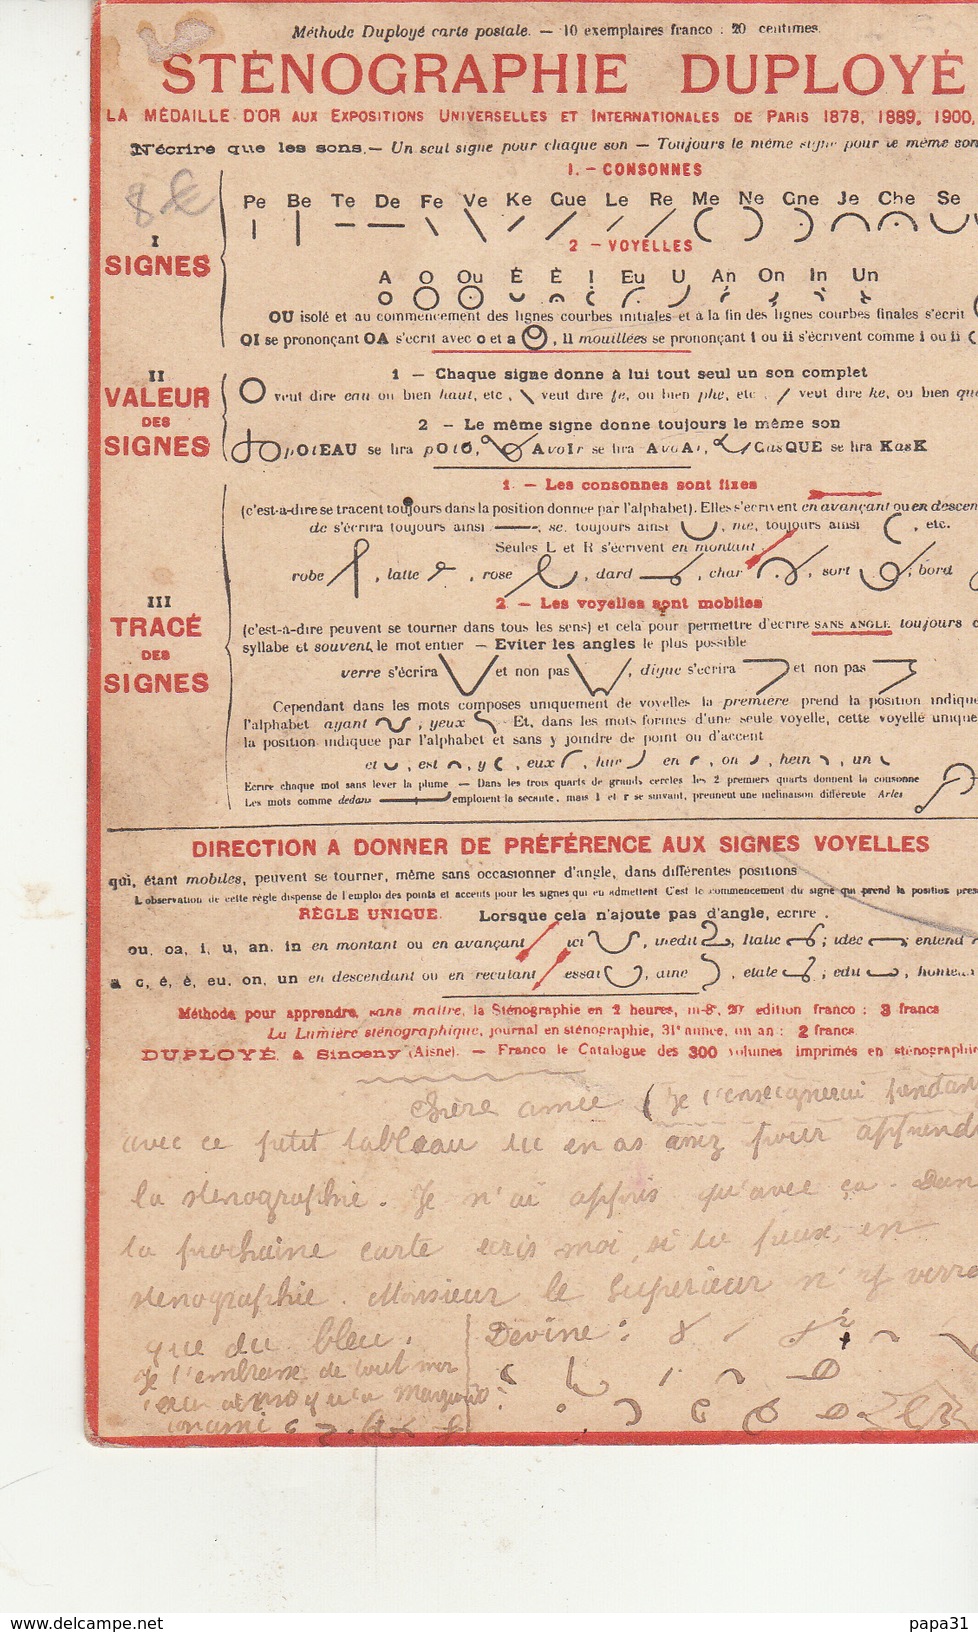 Méthode Duployé carte postale. — 10 exemplaires franco : 20 centimes.
STÉNOGRAPHIE DUPLOYÉ
LA MÉDAILLE D'OR AUX EXPOSITIONS UNIVERSELLES ET INTERNATIONALES DE PARIS 1878, 1889, 1900,
N'écrire que les sons. — Un seul signe pour chaque son — Toujours le même signe pour le même son
8 €
1. - CONSONNES
Pe Be Te De Fe Ve Ke Gue Le Re Me Ne Gne Je Che Se
I
SIGNES
2 - VOYELLES
A O Ou É È I Eu U An On In Un
OU isolé et au commencement des lignes courbes initiales et à la fin des lignes courbes finales s'écrit
OI se prononçant OA s'écrit avec o et a , ll mouillées se prononçant i ou ii s'écrivent comme i ou ii
II
VALEUR
DES
SIGNES
1 — Chaque signe donne à lui tout seul un son complet
veut dire eau ou bien haut, etc , veut dire fe, ou bien phe, etc . veut dire ke, ou bien que
2 - Le même signe donne toujours le même son
pOtEAU se lira pOtO, AvoIr se lira AvoAr, CasQUE se lira KasK
1. - Les consonnes sont fixes
(c'est-à-dire se tracent toujours dans la position donnée par l'alphabet). Elles s'écrivent en avançant ou en descen
de s'écrira toujours ainsi , se, toujours ainsi , me, toujours ainsi , etc.
Seules L et R s'écrivent en montant
robe , latte , rose , dard , char , sort , bord
III
TRACÉ
DES
SIGNES
2 - Les voyelles sont mobiles
(c'est-à-dire peuvent se tourner dans tous les sens) et cela pour permettre d'écrire SANS ANGLE toujours
syllabe et souvent le mot entier — Eviter les angles le plus possible
verre s'écrira et non pas , digue s'écrira et non pas
Cependant dans les mots composés uniquement de voyelles la première prend la position indique
l'alphabet ayant , yeux Et, dans les mots formés d'une seule voyelle, cette voyelle unique
la position indiquée par l'alphabet et sans y joindre de point ou d'accent
et , est , y , eux , hue , en , on , hein , un
Ecrire chaque mot sans lever la plume — Dans les trois quarts de grands cercles les 2 premiers quarts donnent la consonne
Les mots comme dedans emploient la sécante, mais l et r se suivant, prennent une inclinaison différente Arles
DIRECTION A DONNER DE PRÉFÉRENCE AUX SIGNES VOYELLES
qui, étant mobiles, peuvent se tourner, même sans occasionner d'angle, dans différentes positions
L'observation de cette règle dispense de l'emploi des points et accents pour les signes qui en admettent C'est le commencement du signe qui prend la position pres
RÈGLE UNIQUE. Lorsque cela n'ajoute pas d'angle, écrire .
ou, oa, i, u, an, in en montant ou en avançant ici , inédit , Italie ; idée ; entend
a, o, é, è, eu, on, un en descendant ou en reculant essai , aîné , étale , édit , honteux
Méthode pour apprendre, sans maître, la Sténographie en 2 heures, in-8°, 27e édition franco : 3 francs
La Lumière sténographique, journal en sténographie, 31e année, un an : 2 francs
DUPLOYÉ, à Sinceny (Aisne). — Franco le Catalogue des 300 volumes imprimés en sténographie
Chère amie ( Je t'enseignerai pendan
avec ce petit tableau tu en as assez pour apprend
la sténographie. Je n'ai appris qu'avec ça. Dan
ta prochaine carte ecris moi, si tu peux, en
sténographie. Monsieur le Supérieur n'y verra
que du bleu.
Devine :
Je t'embrasse de tout mon